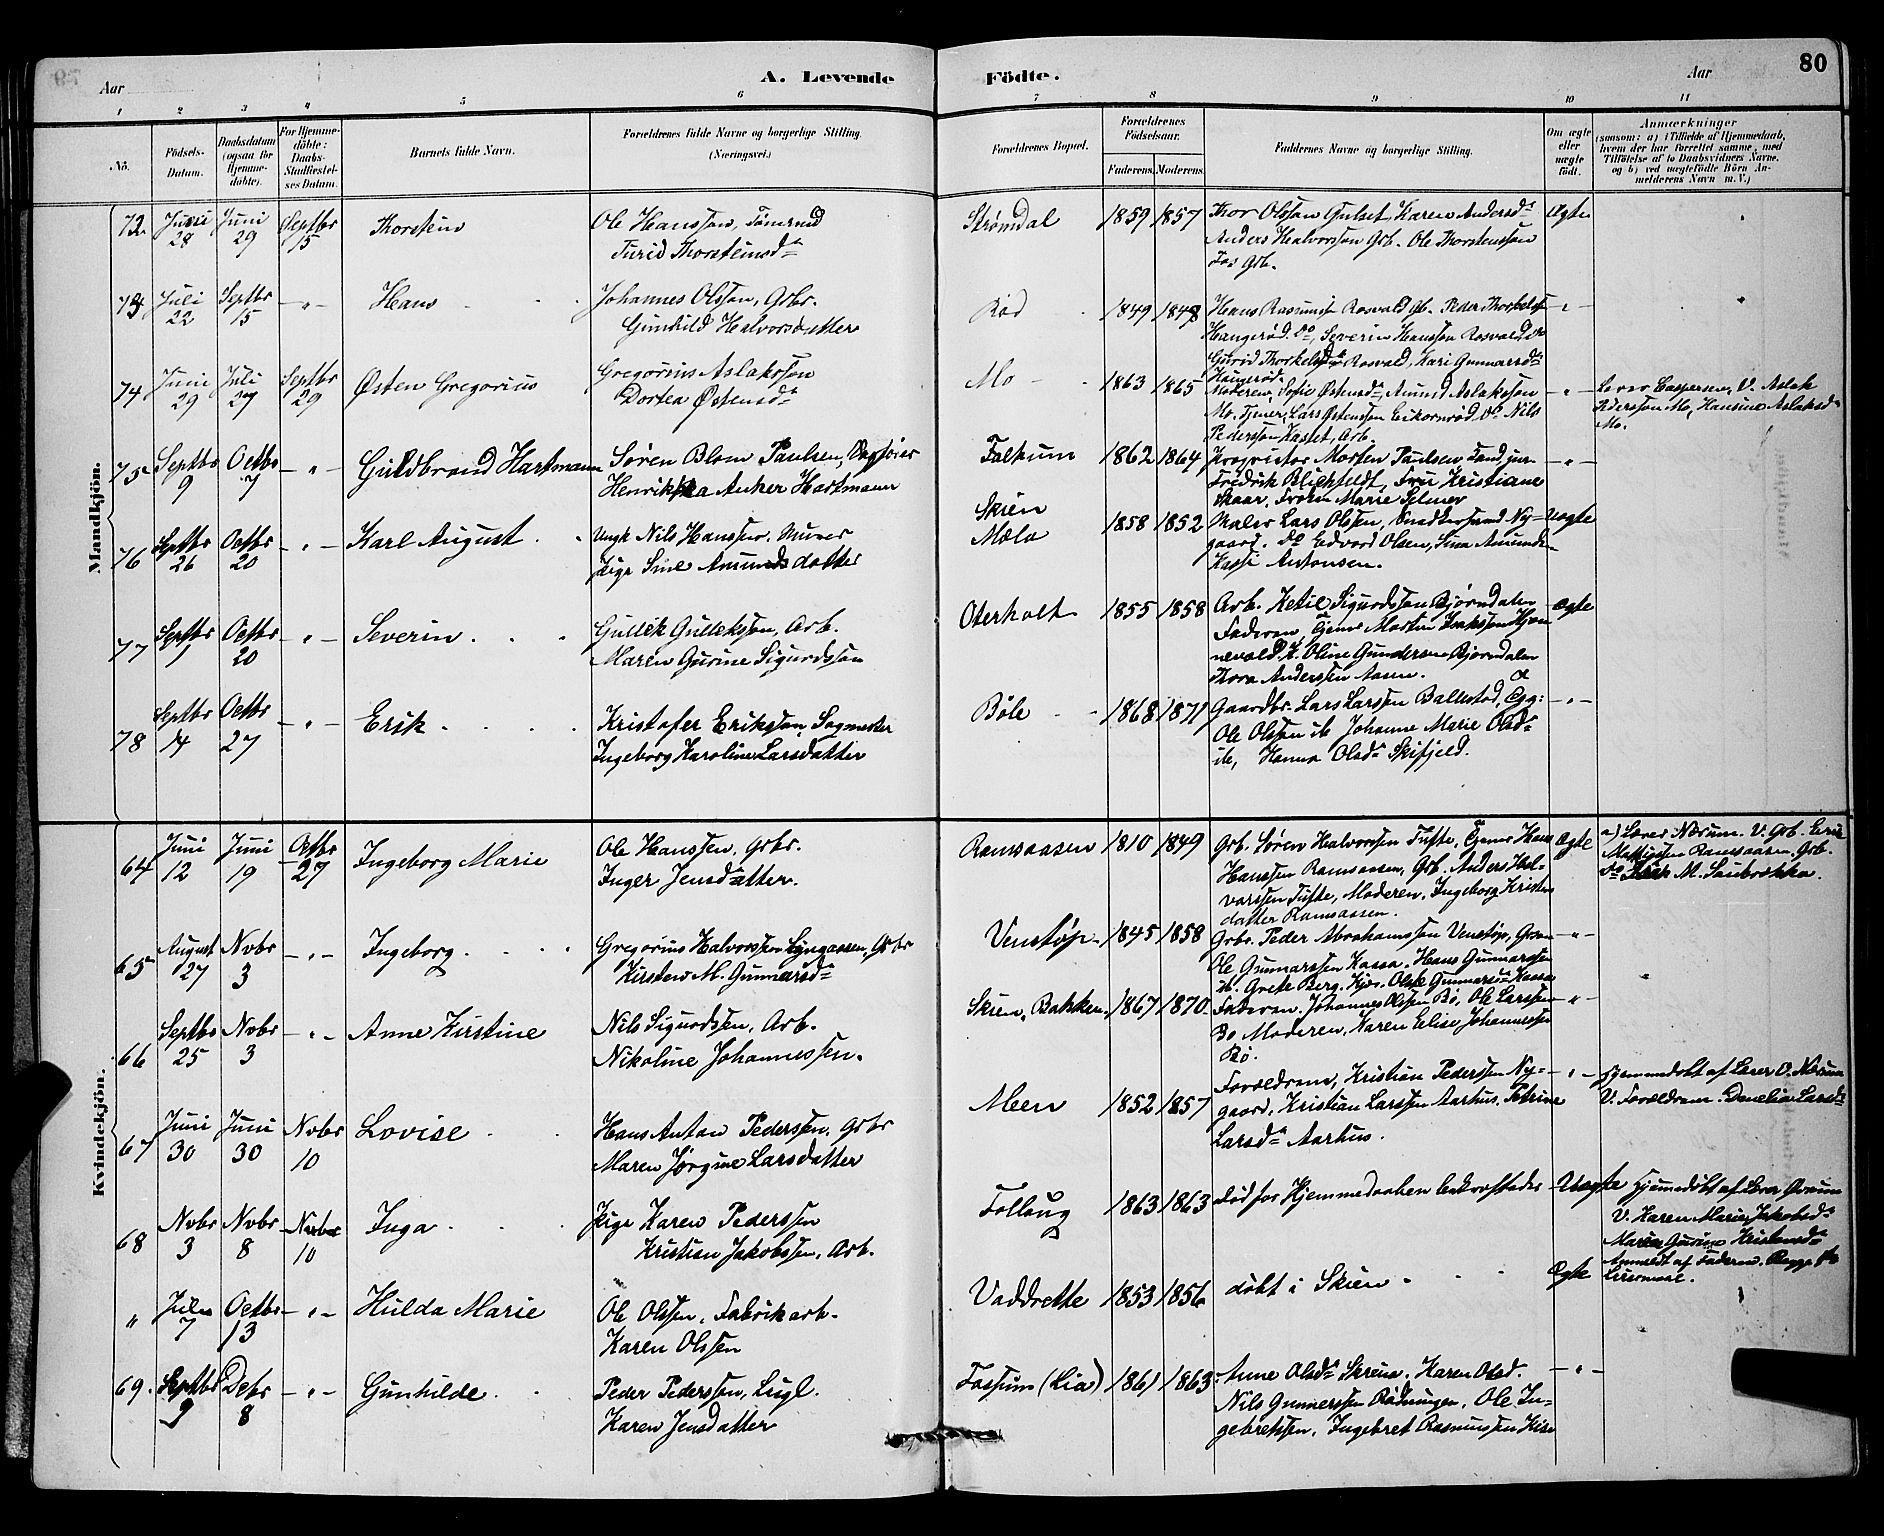 80
Aar
A. Levende
Födte.
Aar
1 2 3 4 5 6 7 8 9 10 11
No.
Födsels-Datum.
Daabsdatum (ogsaa for Hjemme-döbte).
For Hjemme-döbte: Daabs-Stadfæstel-ses Datum.
Barnets fulde Navn.
Forældrenes fulde Navne og borgerlige Stilling. (Næringsvei.)
Forældrenes Bopæl.
Forældrenes Födselsaar.
Faderens. Moderens.
Faddernes Navne og borgerlige Stilling.
Om ægte eller uægte födt.
Anmærkninger
(saasom: a) i Tilfælde af Hjemmedaab,
hvem der har forrettet samme, med
Tilföielse af to Daabsvidners Navne.
og b) ved uægtefödte Börn An-
melderens Navn m. V.)
Mandkjön.
72 Juni 28 Juni 29 Septbr 15 Thorstein
Ole Hanssen, Tømmd
Turid Thorsteinsdr
Strømdal 1859 1857
Thor Olsson Gulset, Karen Andersdr
Anders Halvorsson Grb. Ole Thorstensson
Fos Grb.
Ægte
73 Juli 22 Septbr 15 -"- Hans
Johannes Olsson, Grbr.
Gunhild Halvorsdatter
Rød 1849 1848
Hans Rasmusse Rosvald Gb. Peder Thorkelsse
Haugerød Do, Severin Hansson Rosvald, do
Gurid Thorkelsdr Rosvald, Kari Gunnarsdr
Haugerød.
-"-
74 Juni 29 Juli 27 Septbr 29 Østen Gregorius
Gregorius Aslaksson
Dortea Østensdr
Mo 1863 1865
Moderen, Sofie Østensdr, Amund Aslaksson
Mo. Tjener, Lars Østensson Eikornrød Do Nils
Pedersson Kasset, Arb.
-"-
Lærer Caspersen, V. Aslak
Pedersson Mo, Hansine Aslaksdr
Mo.
75 Septbr 9 Octbr 7 -"- Guldbrand Hartmann
Søren Blom Paulsen,
Henrikka Anker Hartmann
Falkum 1862 1864
Proprietor Morten Paulsen
Fredrik Blichfeldt, Fru Kristiane
Skaar, Frøken Marie Selmer
-"-
76 Septbr 26 Octbr 20 -"- Karl August
Ungk Nils Hanssen, Murer
Pige Sine Amundsdatter
Skien
Mæla 1858 1852
Maler Lars Olsen, Snedkersvend Ny-
gaard. Do Edvard Olsen, Sina Amunds-
Kasse Antonsen.
Uægte
77 Septbr 1 Octbr 20 -"- Severin
Gullik Gulleksson, Arb.
Maren Gurine Sigurdsson
Oterholt 1855 1858
Arb. Ketil Sigurdsson Bjørndalen
Faderen, Tjener Morten Isaksson
nevold, P. Oline Gundersen Bjørndalen
Thora Anderssen Aasen.
Ægte
78 Septbr 14 Octbr 27 -"- Erik
Kristofer Eriksson, Sagmester
Ingeborg Karoline Larsdatter
Bøle 1868 1871
Gaardbr. Lars Larssen Ballestad,
Ole Olssen ib. Johanne Marie Olsdr
ib, Hanna Olsdr Skifjeld.
-"-
Kvindekjön.
64 Juni 12 Juni 19 Octbr 27 Ingeborg Marie
Ole Hanssen, Grbr.
Inger Jensdatter.
Ramsaasen 1810 1849
Grb. Søren Halvorssen Tufte, Tjener Hans
Hanssen Ramsaasen, Grb. Anders Hal-
vorssen Tufte, Moderen, Ingeborg Kristen
datter Ramsaasen.
Ægte
a) Lærer Nærum. V. Grb. Erik
Mathissen Ramsaasen, Grb.
65 August 27 Novbr 3 -"- Ingeborg
Gregorius Halvorssen Lyngaasen, Grbr
Kirsten M. Gunnarsdr
Venstøp 1845 1858
Grbr. Peder Abrahamssen Venstøp, Grbr.
Ole Gunnarssen Kassa. Hans Gunnarssen
ib. Grete Berg. Kjær. Olise Gunnarsdr Kassa
-"-
66 Septbr 25 Novbr 3 -"- Anne Kirstine
Nils Sigurdssen, Arb.
Nikoline Johannessen.
Skien, Bakken 1867 1870
Faderen, Johannes Olssen Bø, Ole Larssen
Bø Moderen, Karen Elise Johannessen
Bø.
-"-
67 Juni 30 Juni 30 Novbr 10 Lovise
Hans Anton Pederssen, Grbr
Maren Jørgine Larsdatter
Meen 1852 1857
Forældrene, Kristian Pederssen Ny-
gaard, Kristian Larssen Aarhus, Petrine
Larsdr Aarhus.
-"-
Hjemmedøbt af Lærer O. Nærum
V. Forældrene. Larsdr
68 Novbr 3 Novbr 8 Novbr 10 Inga
Pige Karen Pederssen
Kristian Jakobssen, Arb.
Follaug 1863 1863
død før Hjemmedaaben bekræftedes
Uægte
Hjemmedøbt af Lærer
V. Karen Marie Jakobsdr
Maren Gurine Kristensdr
Anmeldt af Faderen.
" Juli 7 Octbr 13 -"- Hulda Marie
Ole Olssen, Fabrikarb.
Karen Olssen
Vaddrette 1853 1856
døbt i Skien
Ægte
69. Septbr 9 Debr 8 -"- Gunhilde
Peder Pederssen, Lugl.
Karen Jensdatter
Fossum (Lia) 1861 1863
Anne Olsdr Skreua. Karen Olsd.
Nils Gunnerssen Rødningen, Ole In-
gebretssen, Ingebret Rasmussen Kise
-"-